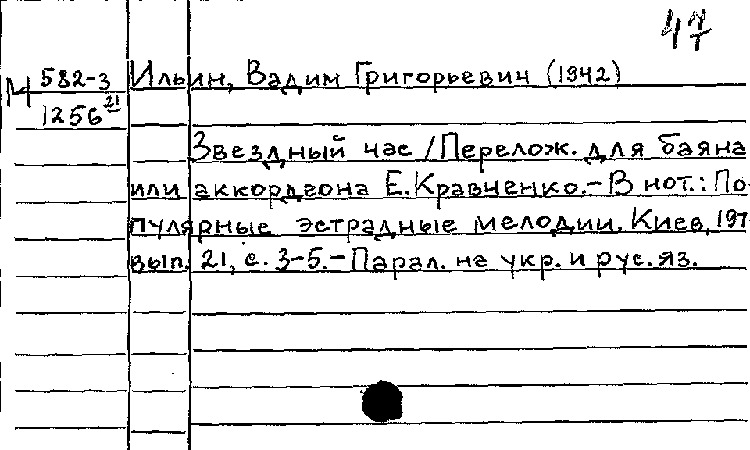 М 582-3 Ильин, Вадим Григорьевич (1942)
1256 21
Звездный час / Перелож. для баяна
или аккордеона Е. Кравченко. - В нот.: По-
пулярные эстрадные мелодии. Киев, 197
вып. 21, с. 3-5. - Парал. на укр. и рус. яз.